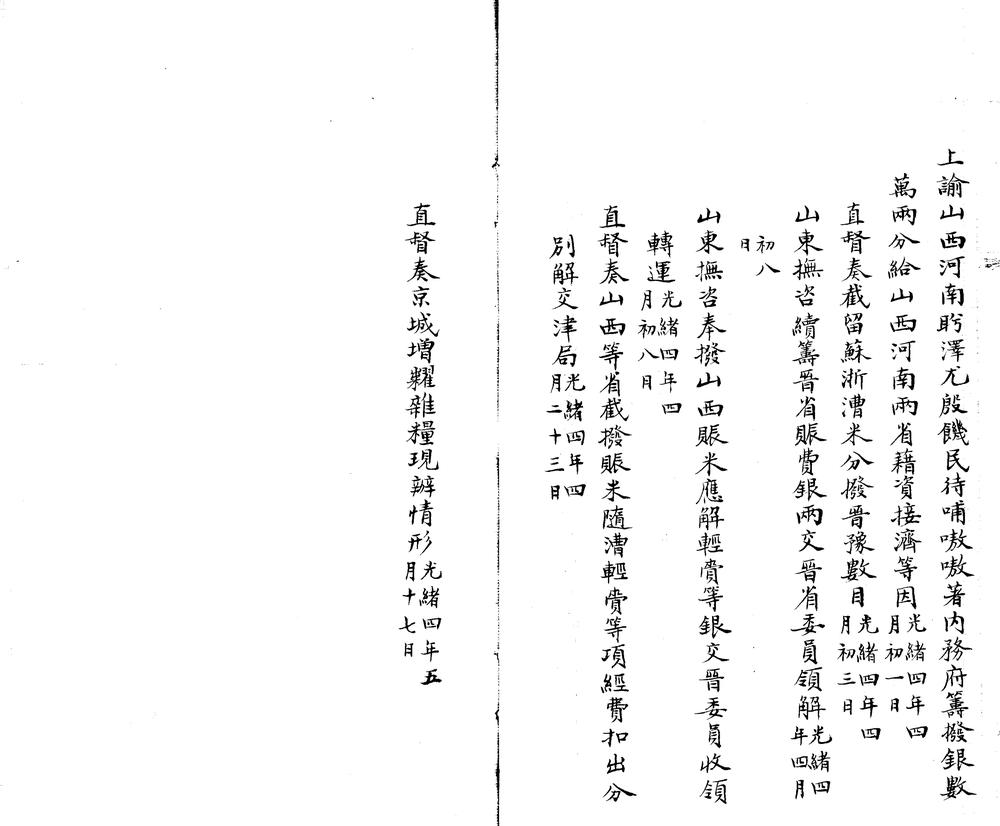 上諭山西河南盻澤尤殷饑民待哺嗷嗷著内務府籌撥銀數
萬兩分給山西河南兩省藉資接濟等因光緒四年四月初一日
直督奏截留蘇浙漕米分撥晋豫數目光緒四年四月初三日
山東撫咨續籌晋省賑費銀兩交晋省委員領解光緒四年四月
初八日
山東撫咨奉撥山西賑米應解輕賫等銀交晋委員收領
轉運光緒四年四月初八日
直督奏山西等省截撥賑米隨漕輕賫等項經費扣出分
別解交津局光緒四年四月二十三日
直督奏京城增糶雜糧現辦情形光緒四年五月十七日